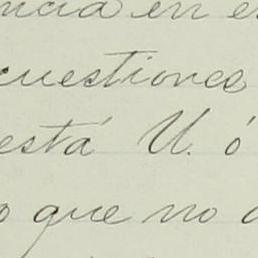 ncia en es
cuestiones
está U. ó
o que no a